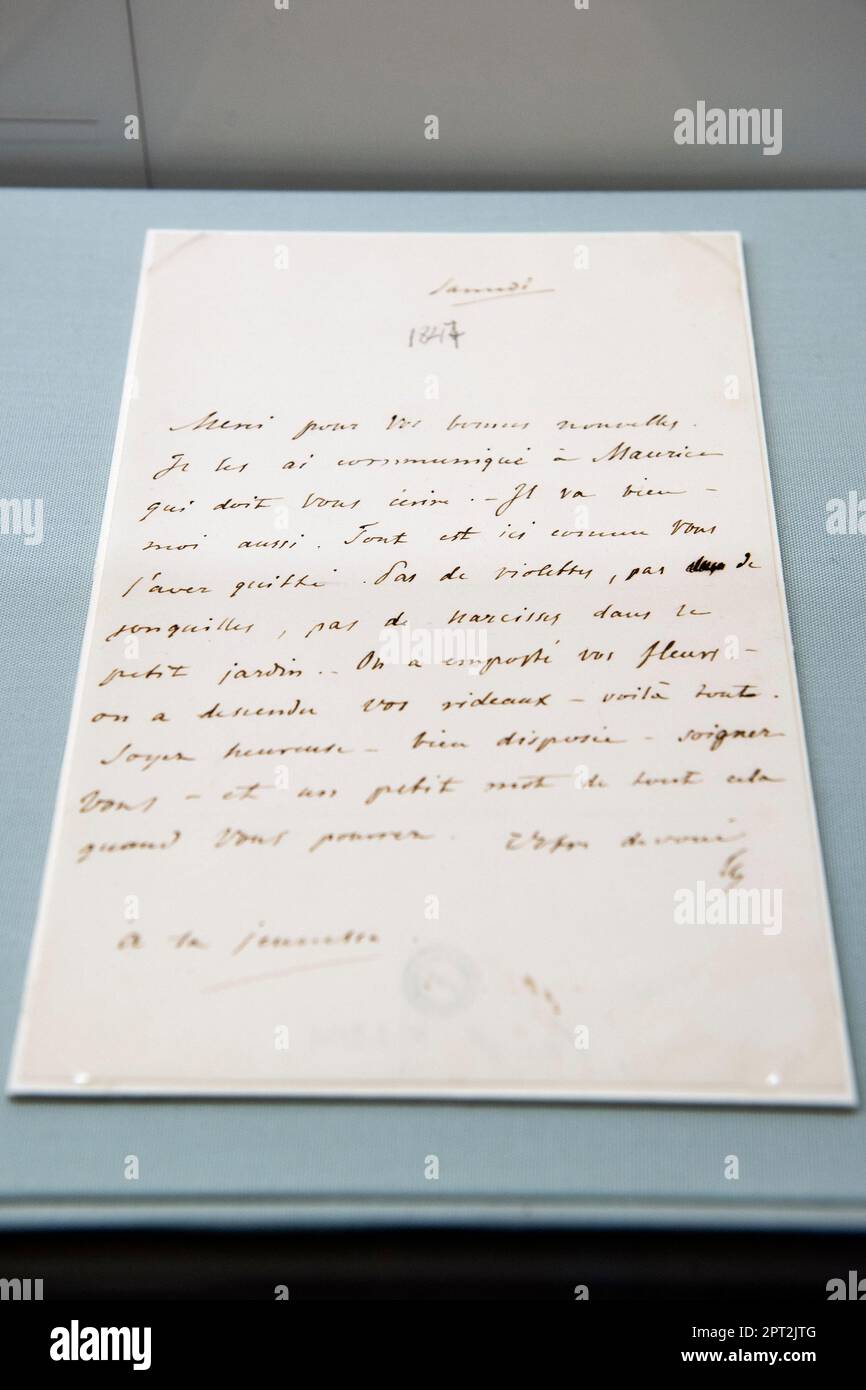 Samedi
1847
Merci pour vos bonnes nouvelles.
Je les ai communiqué à Maurice
qui doit vous écrire. – Il va bien –
moi aussi. Tout est ici comme vous
l'avez quitté. Pas de violettes, pas de
jonquilles, pas de narcisses dans le
petit jardin. – On a emporté vos fleurs –
on a descendu vos rideaux – voilà tout.
Soyez heureuse – bien disposée – soignez
vous – et un petit mot de tout cela
quand vous pourrez. Votre devoué
Ch
à la jeunesse.
alamy
Image ID: 2PT2JTG
www.alamy.com